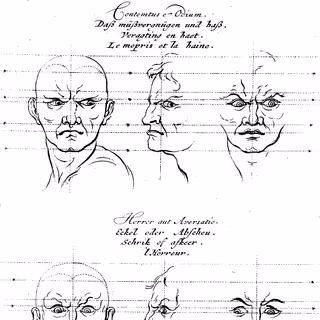 Contemtus & Odium.
Daß müßvergnügen und haß.
Veragting en haet.
Le mepris et la haine.
Horror aut Aversatio.
Eckel oder Abscheu.
Schrik of afkeer.
l'Horreur.